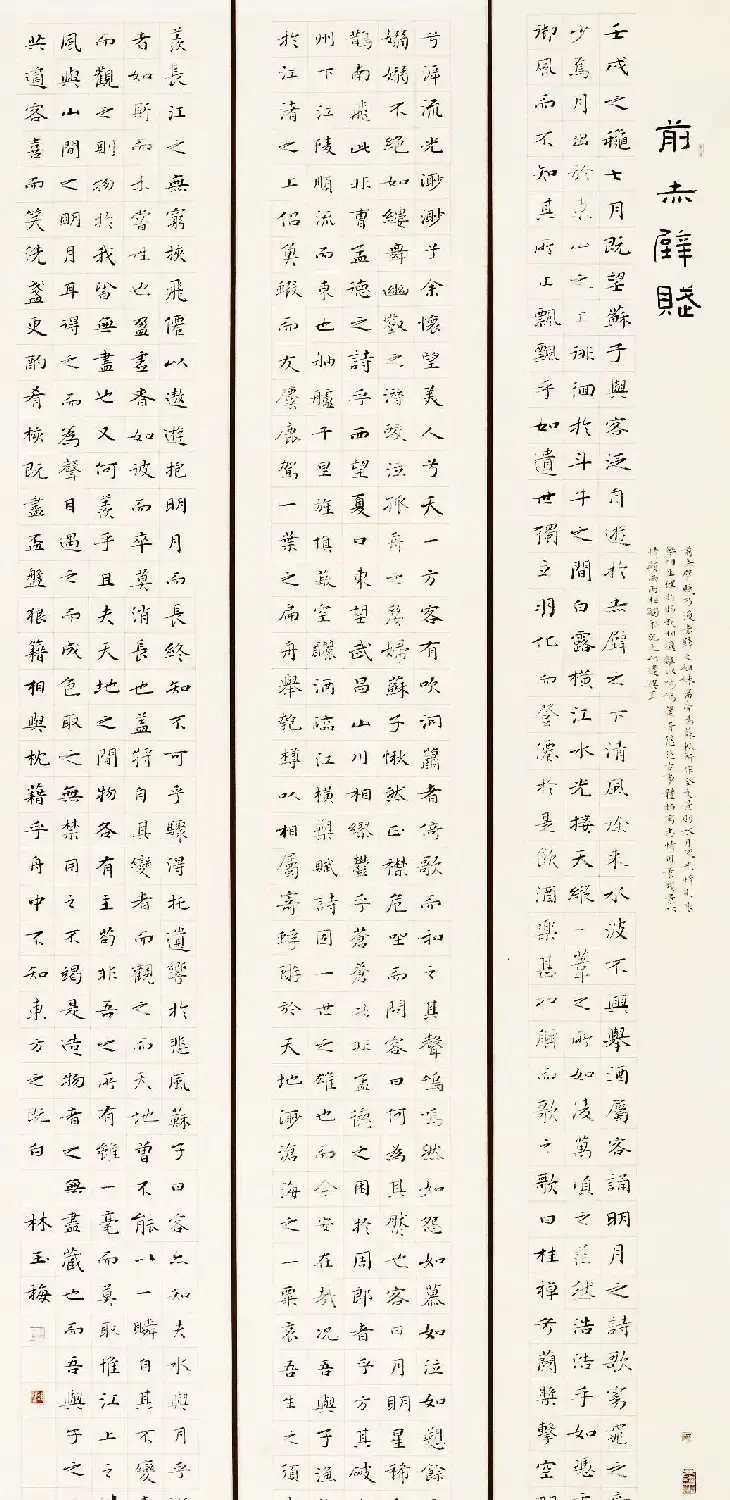 前赤壁賦
壬戌之穐七月既望蘇子與客泛舟遊於赤壁之下清風徐來水波不興舉酒屬客誦明月之詩歌窈窕之
少焉月出於東山之上徘徊於斗牛之間白露橫江水光接天縱一葦之所如凌萬頃之茫然浩浩乎如憑
御風而不知其所止飄飄乎如遺世獨立羽化而登僊於是飲酒樂甚扣舷而歌之歌曰桂棹兮蘭槳擊空
兮泝流光渺渺兮余懷望美人兮天一方客有吹洞簫者倚歌而和之其聲嗚嗚然如怨如慕如泣如愬餘
嫋嫋不絕如縷舞幽壑之潛蛟泣孤舟之嫠婦蘇子愀然正襟危坐而問客曰何為其然也客曰月明星稀
鵲南飛此非曹孟德之詩乎西望夏口東望武昌山川相繆鬱乎蒼蒼此非孟德之困於周郎者乎方其破
州下江陵順流而東也舳艫千里旌旗蔽空釃酒臨江橫槊賦詩固一世之雄也而今安在哉況吾與子漁
於江渚之上侶魚蝦而友麋鹿駕一葉之扁舟舉匏樽以相屬寄蜉蝣於天地渺滄海之一粟哀吾生之須
羨長江之無窮挾飛僊以遨遊抱明月而長終知不可乎驟得托遺響於悲風蘇子曰客亦知夫水與月乎
者如斯而未嘗往也盈虛者如彼而卒莫消長也蓋將自其變者而觀之而天地曾不能以一瞬自其不變
而觀之則物於我皆無盡也又何羨乎且夫天地之間物各有主苟非吾之所有雖一毫而莫取惟江上之
風與山間之明月耳得之而為聲目遇之而成色取之無禁用之不竭是造物者之無盡藏也而吾與子之
共適客喜而笑洗盞更酌肴核既盡盃盤狼籍相與枕藉乎舟中不知東方之既白
林玉梅